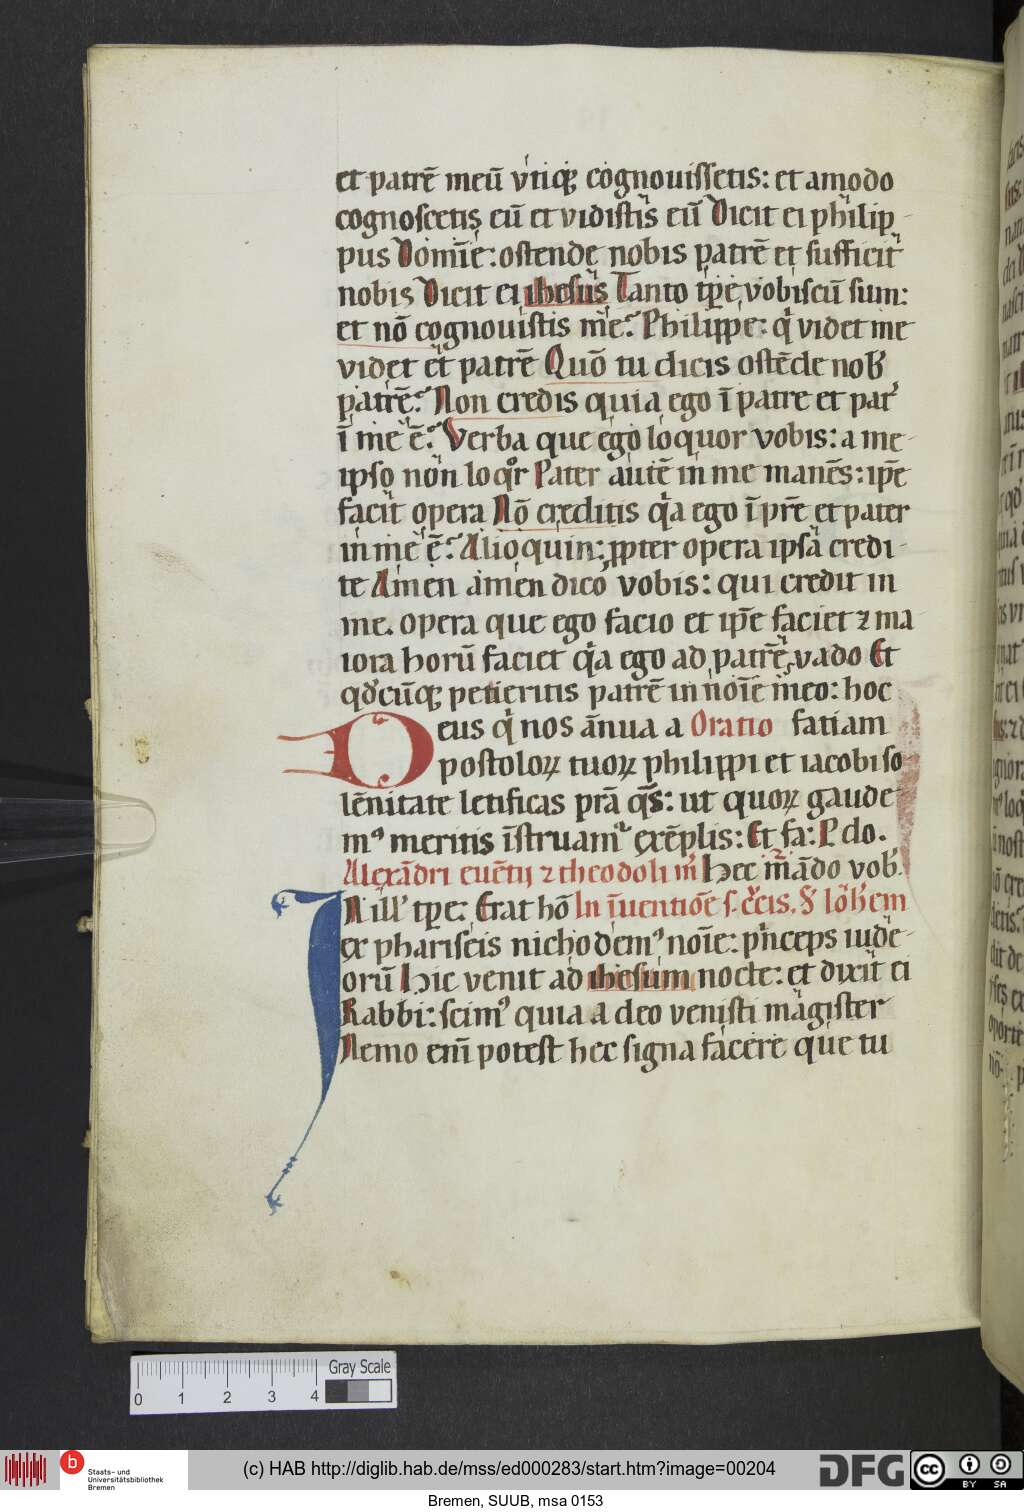 et patrē meū vtiqꝫ cognouiſſetis: et amodo
cognoſcetis eū et vidiſtis eū Dicit ei philip-
pus Domīe: oſtende nobis patrē et ſufficit
nobis Dicit ei iheſus Tanto tꝑe vobiſcū ſum:
et nō cognouiſtis me? Philippe: qͥ videt me
videt et patrē Quō tu dicis oſtēde nob̛
patrē? Non credis quia ego ī patre et pat̛
ī me ē? Verba que ego loquor vobis: a me-
ipſo non loqͦr Pater autē in me manēs: ip̄e
facit opera Nō creditis qͥa ego ī pr̄e et pater
in me ē? Alioquin: ꝓpter opera ipſa credi-
te Amen amen dico vobis: qui credit in
me. opera que ego facio et ip̄e faciet ⁊ ma
iora horū faciet qͥa ego ad patrē vado Et
qd̛cūqꝫ petieritis patrē in noīe meo: hoc
Deus qͥ nos ānua a Oratio fatiam
poſtoloꝝ tuoꝝ philippi et iacobi ſo
lēnitate letificas pr̄a qs̄: ut quoꝝ gaude-
mꝰ meritis īſtruamʳ exēplis: Et fa: P do.
Alexādri euētij ⁊ theodoli m̄r Hec mādo vob̛.
IN ill̛ tꝑe: Erat hō In īuentiōe ſ. cͨcis. S̛ Ioh̄em
ex phariſeis nichodemꝰ noīe: pͥnceps iude-
orū Hic venit ad iheſum nocte: et dixit ei
Rabbi: ſcimꝰ quia a deo veniſti magiſter
Nemo em̄ poteſt hec ſigna facere que tu
0 1 2 3 4
Gray Scale
b
Staats- und
Universitätsbibliothek
Bremen
(c) HAB http://diglib.hab.de/mss/ed000283/start.htm?image=00204
DFG
cc BY SA
Bremen, SUUB, msa 0153